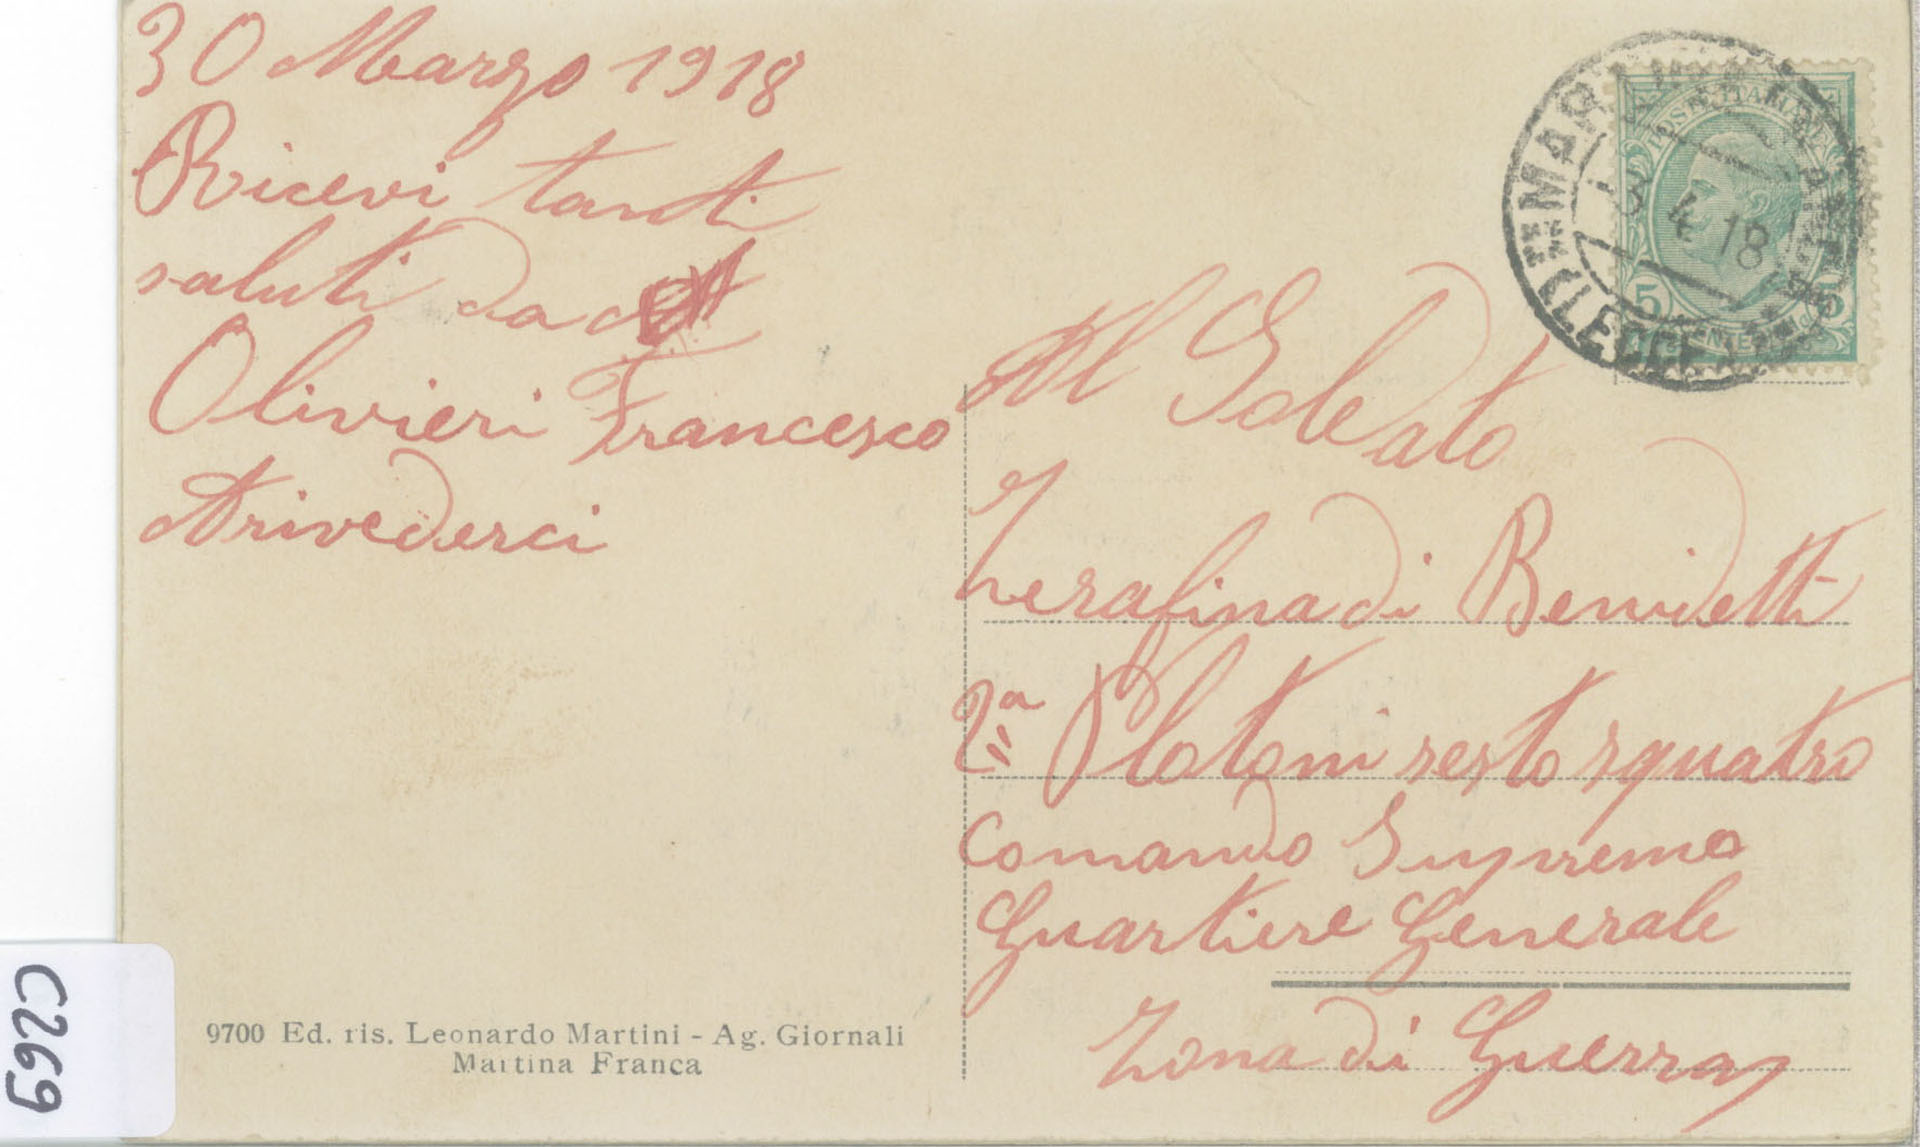 30 Marzo 1918
Ricevi tanti
saluti da
Olivieri Francesco
Arivederci
9700 Ed. ris. Leonardo Martini - Ag. Giornali
Martina Franca
POSTE ITALIANE
5 5
MARTINA
4 18
(LECCE)
Al Soldato
Zerafina di Benidetti
2a Plotoni sesto squatro
Comando Supremo
Quartiere Generale
Zona di Guerra
C269